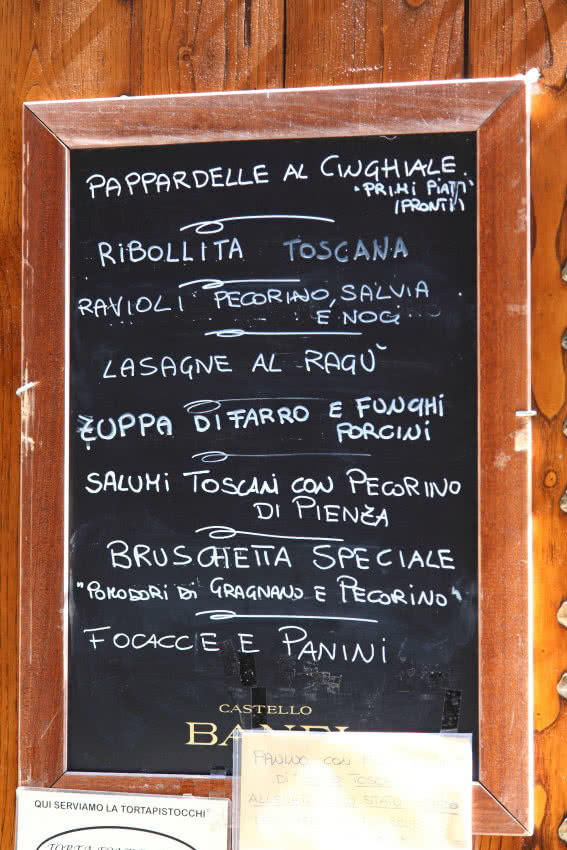 PAPPARDELLE AL CINGHIALE.
"PRIMI PIATTI"
(PRONTI)
RIBOLLITA TOSCANA
RAVIOLI PECORINO, SALVIA
E NOCI
LASAGNE AL RAGÙ
ZUPPA DI FARRO E FUNGHI
PORCINI
SALUMI TOSCANI CON PECORINO
DI PIENZA
BRUSCHETTA SPECIALE
"POMODORI DI GRAGNANO E PECORINO"
FOCACCE E PANINI
CASTELLO
PANINO CON
DI
QUI SERVIAMO LA TORTAPISTOCCHI